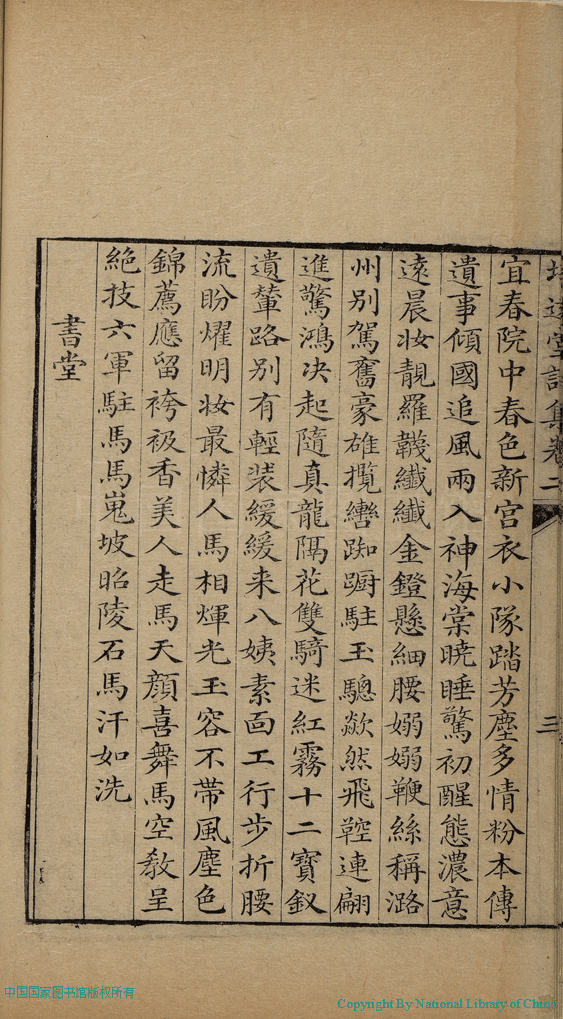 培遠堂詩集卷二
三
宜春院中春色新宮衣小隊踏芳塵多情粉本傳
遺事傾國追風兩入神海棠曉睡驚初醒態濃意
遠晨妝靚羅韈纖纖金鐙懸細腰嫋嫋鞭絲稱潞
州別駕奮豪雄攬轡踟蹰駐玉驄歘然飛鞚連翩
進驚鴻决起隨真龍隔花雙騎迷紅霧十二寶釵
遺輦路別有輕装緩緩来八姨素靣工行步折腰
流盼燿明妆最憐人馬相煇光玉容不帶風塵色
錦薦應留袴衱香美人走馬天顔喜舞馬空教呈
絕技六軍駐馬馬嵬坡昭陵石馬汗如洗
書堂
中国国家图书馆版权所有
Copyright By National Library of China